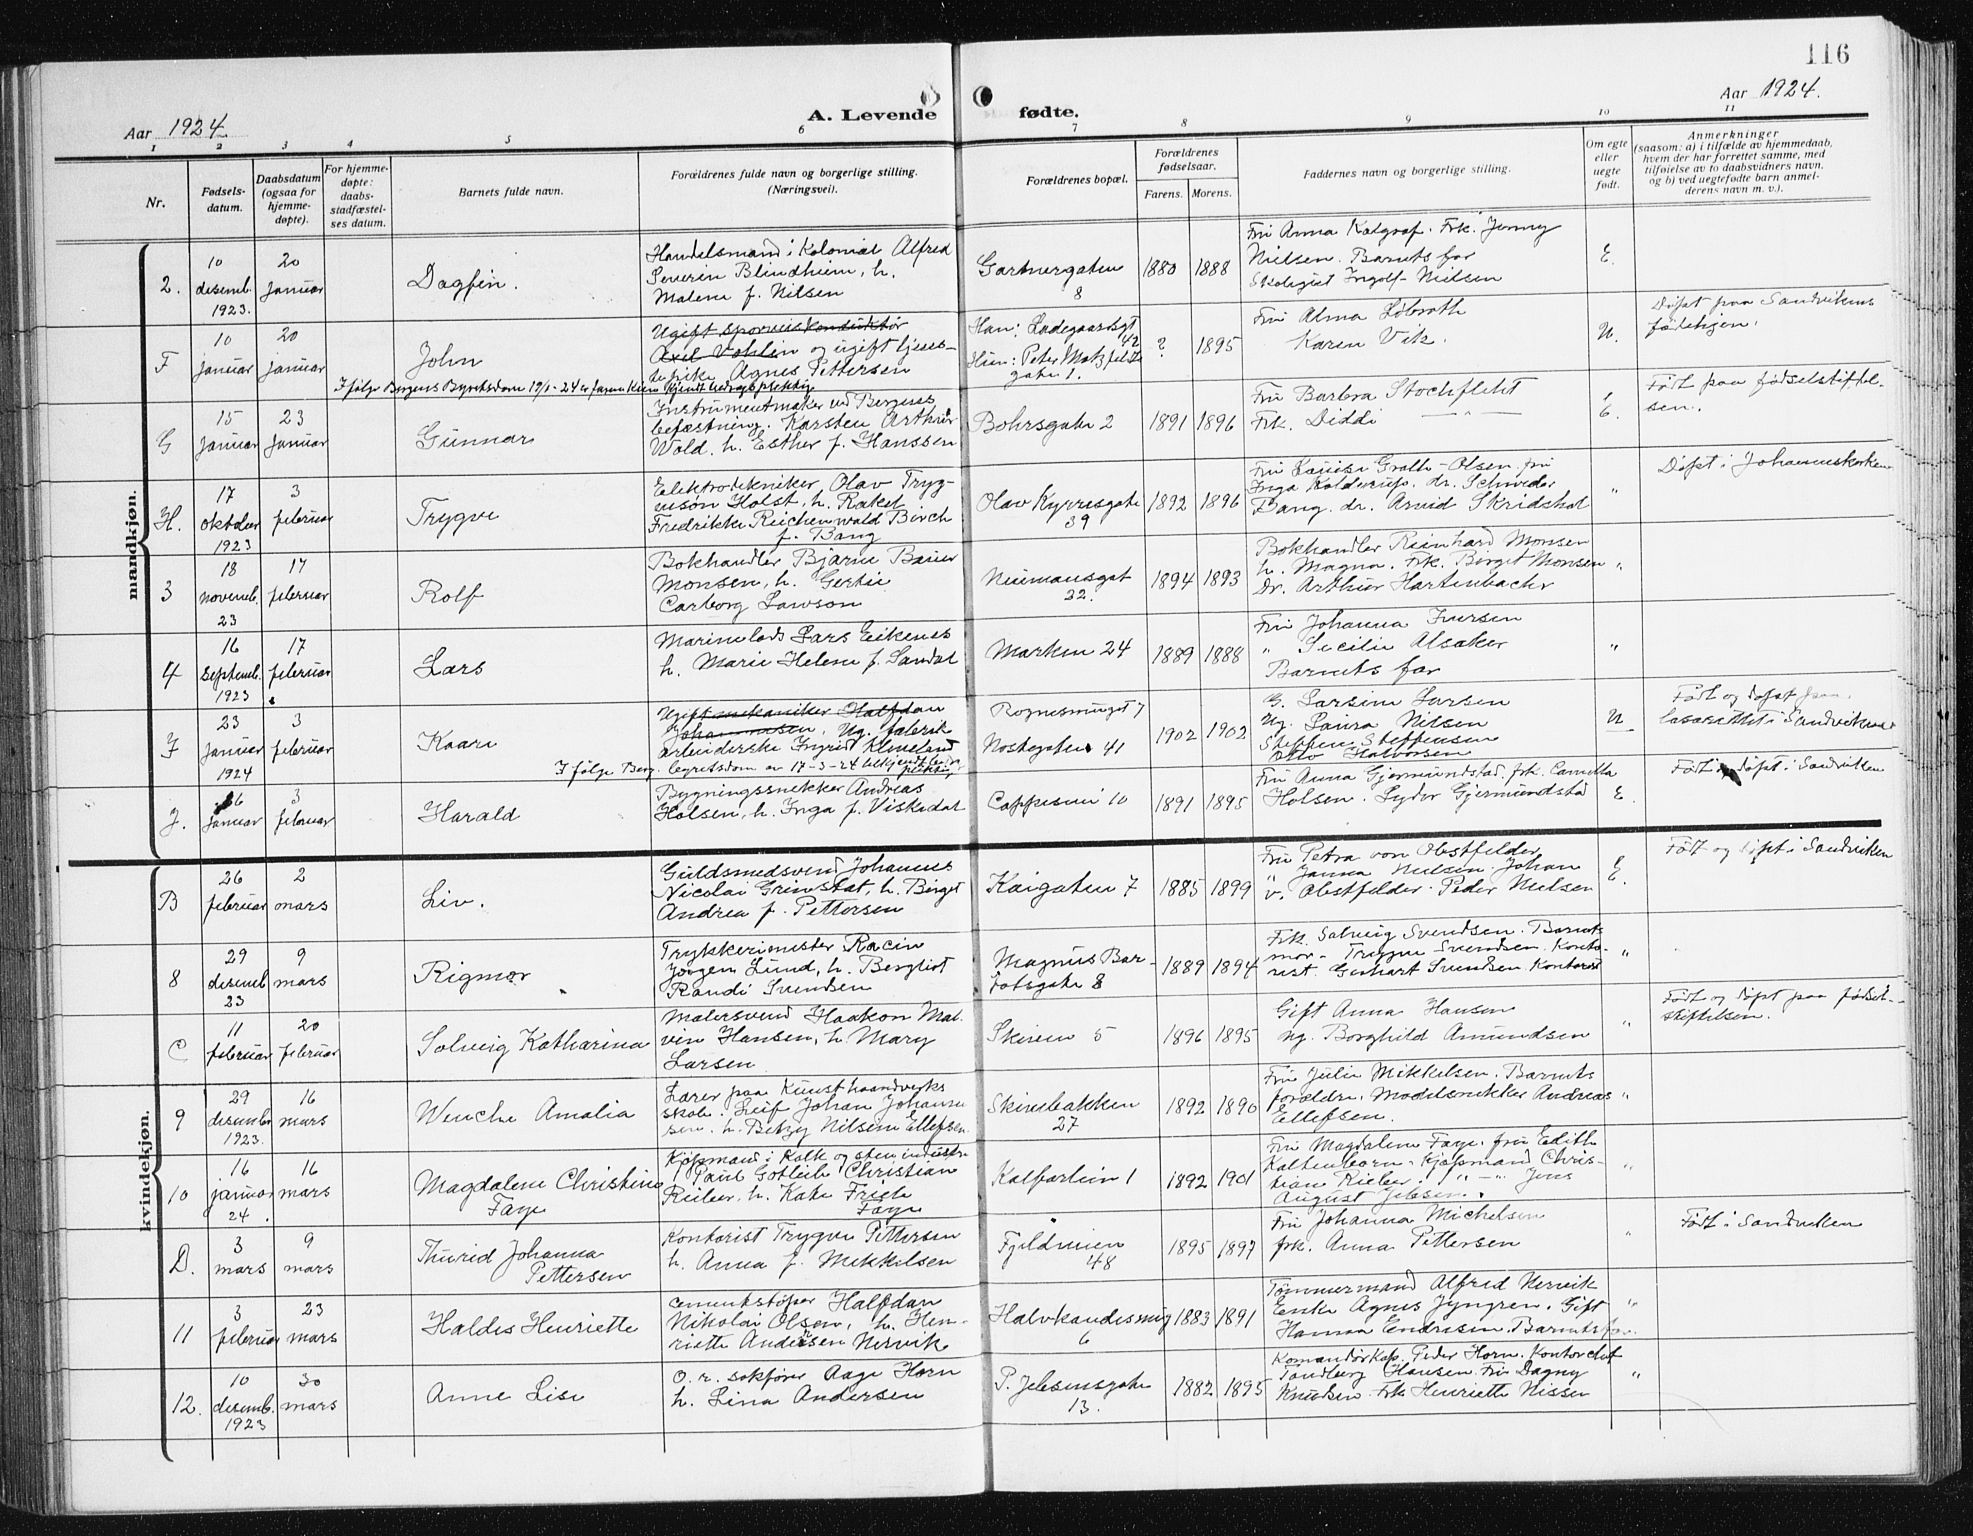 116
Aar 1924
A. Levende fødte.
Aar 1924.
1 2 3 4 5 6 7 8 9 10 11
Nr.
Fødsels-
datum.
Daabsdatum
(ogsaa for
hjemme-
døpte).
For hjemme-
døpte:
daabs-
stadfæstel-
ses datum.
Barnets fulde navn.
Forældrenes fulde navn og borgerlige stilling.
(Næringsvei).
Forældrenes bopæl.
Forældrenes
fødselsaar.
Farens. Morens.
Faddernes navn og borgerlige stilling.
Om egte
eller
uegte
født.
Anmerkninger
(saasom: a) i tilfælde av hjemmedaab,
hvem der har forrettet samme, med
tilføielse av to daabsvidners navn.
og b) ved uegtefødte barn anmel-
derens navn m. v.).
mandkjøn.
2. 10 desemb. 1923. 20 januar Dagfin.
Handelsmand i Kolonial Alfred
Severin Blindheim, h.
Malene f. Nilsen
Gartnergaten 8 1880 1888
Fru Anna Kalgraf. Frk. Jenny
Nielsen. Barnets far
Ingolf Nielsen
E.
F 10 januar 20 januar John
Ugift sporveiskonduktør
Axel Vohlin og ugift tjenes-
tepike Agnes Pettersen
I følge Bergens Byretsdom 19/1-24 er faren kun kjendt bidragspliktig
Han: Ladegaardsgt 42
Hun: Peter Motzfeldts
gate 1.
? 1895
Fru Alma Løbroth
Karen Vik.
U.
Døpt paa Sandvikens
fødehjem.
G 15 januar 23 januar Gunnar
Instrumentmaker ved Bergens
befæstning. Karsten Arthur
Wold. h. Esther f. Hanssen
Bohrsgate 2 1891 1896
Fru Barbra Stochfleht
Frk. Diddi — " —
E.
Født paa fødselstiftel-
sen.
H. 17 oktober 1923 3 februar Trygve
Elektrotekniker Olav Tryg-
vesøn Holst, h. Rakel
Fredrikke Reichenwald Birch
f. Bang
Olav Kyrresgate 39 1892 1896
Fru Louise Grath-Olsen fru
Inga Kolderup. dr. Schreder
Bang. dr. Arvid Skridshol
"
Døpt i Johanneskirken
3 18 novemb. 23 17 februar Rolf
Bokhandler Bjarne Beier
Monsen, h. Gertie
Carborg Lawson
Neumansgat 32. 1894 1893
Bokhandler Reinhard Monsen
h. Magna. Frk. Birget Monsen
Dr. Arthur Hartenbachr
"
4 16 septemb. 1923 17 februar Lars
Marinelods Lars Eikenes
h. Marie Helene f. Sandal
Marken 24 1889 1888
Fru Johanna Iversen
" Secilie Alsaker
Barnets far
"
I 23 januar 1924 3 februar Kaare
Ugift mekaniker Halfdan
Johannesen, Ug. fabrik
arbeiderske Ingrid Kleveland
I følge Berg. byretsdom av 17-3-24 bekjendt bidragspliktig
Rognesmuget 7
Nostegaten 41
1902 1902
G. Larsine Larsen
Ug. Laura Nilsen
Steffen Steffensen
Otto Halvorsen
U
Født og døpt paa
lasarettet i Sandviken
J. 26 januar 3 februar Harald
Bygningssnekker Andreas
Holsen, h. Inga f. Viskedal
Cappesvei 10 1891 1895
Fru Anna Gjermundstad. frk. Camilla
Holsen. Lyder Gjermundstad
E.
Født og døpt i Sandviken
kvindekjøn.
B 26 februar 2 mars Liv.
Guldsmedsvend Johannes
Nicolai Grimstat, h. Birget
Andrea f. Pettersen
Kaigaten 7 1885 1899
Fru Petra von Obstfelder
" Janna Nielsen Johan
v. Obstfelder. Peder Nielsen
E.
Født og døpt i Sandviken
8 29 desemb 23 9 mars Rigmor
Trykkerimester Racin
Jørgen Lund, h. Bergliot
Randi Svendsen
Magnus Bar-
fotsgate 8 1889 1894
Frk. Solveig Svendsen. Barnets
mor. Trygve Svendsen. Konto-
rist Gerhart Svendsen Kontorist
"
C 11 februar 20 februar Solveig Katharina
Malersvend Haakon Mal-
vin Hansen, h. Mary
Larsen
Skiveien 5 1896 1895
Gift Anna Hansen
ug. Borghild Amundsen
"
Født og døpt paa fødsel-
stiftelsen.
9 29 desember 1923. 16 mars Wenche Amalia
Lærer paa Kunsthaandverks
skole. Leif Johan Johanne-
sen. h. Betzy Nilsine Ellefsen
Skivebakken 27 1892 1890
Fru Julie Mikkelsen. Barnets
forældre, Modelsnekker Andreas
Ellefsen.
"
10 16 januar 24. 16 mars Magdalene Christine
Faye
Kjøpmand i Kalk og stenindustri
Paul Gotleib Christian
Rieber, h. Kate Friele
Faye
Kalfarlien 1 1892 1901
Fru Magdalene Faye. fru Edith
Kaltenborn. Kjøpmand Chris-
tian Rieber. " — " Jens
August Jebsen.
"
D. 3 mars 9 mars Thurid Johanna
Pettersen
Kontorist Trygve Pettersen
h. Anna f. Mikkelsen
Fjeldveien 48 1895 1897
Fru Johanna Michelsen
frk. Anna Pettersen
"
Født i Sandviken
11 3 februar 23 mars Haldis Henriette
Cementstøper Halfdan
Nikolai Olsen, h. Hen-
riette Andersen Nervik
Halvkandesmug 6 1883 1891
Tømmermand Alfred Nervik
Enke Agnes Jyngren. Gift
Hanna Endresen. Barnets far.
"
12. 10 desemb. 1923 30 mars Anne Lise
O. r. sakfører Aage Horn
h. Lina Andersen
P. Jebsensgate 13. 1882 1895
Komandørkap. Peder Horn. Kontorchef
Tandberg Hansen. Fru Dagny
Knudsen Frk Henriette Nissen
"